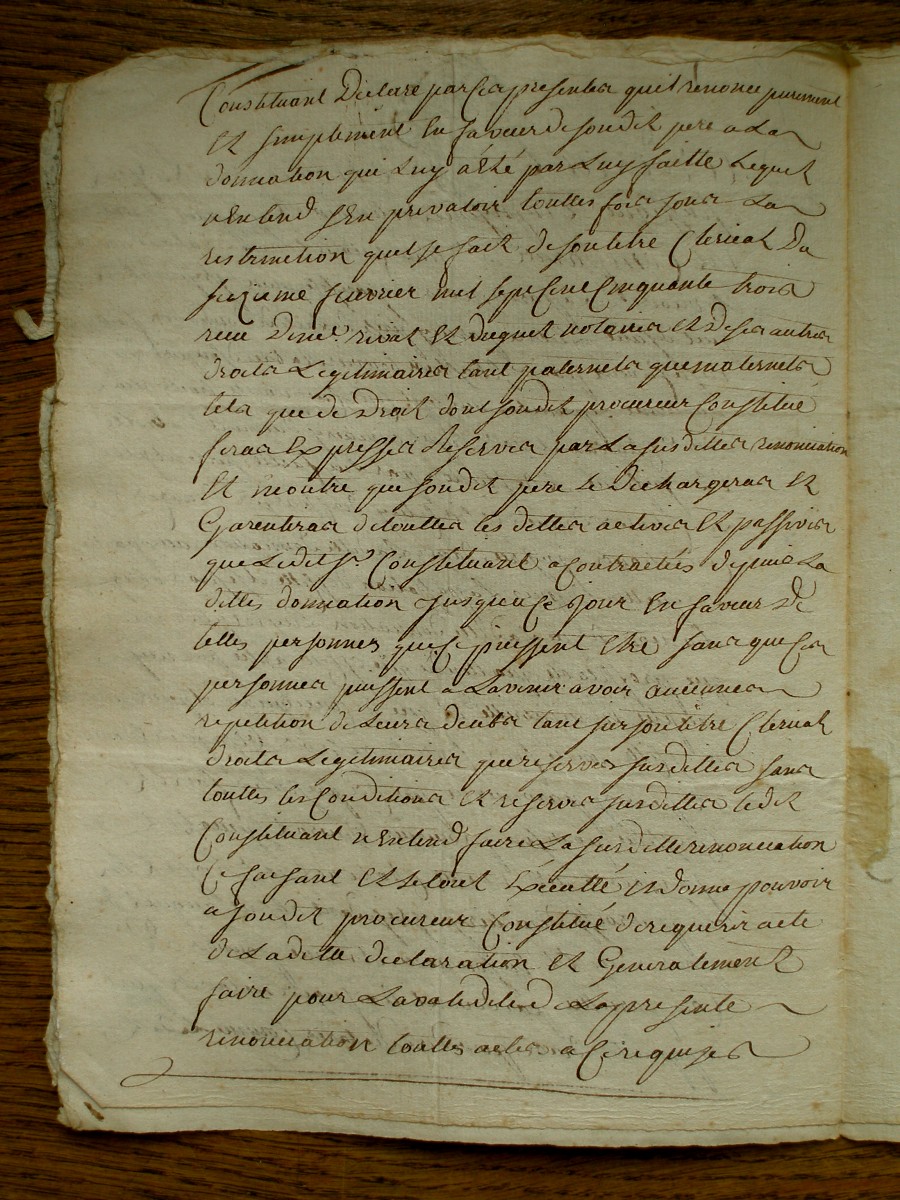 Constituant Declare par Ces presentes quil renonce purement
Et simplement En faveur de son dit pere a La
donnation qui Luy a Eté par Luy faitte Lequel
nEntend sEn prevaloir touttes fois sous La
restrinction quil se fait de son titre Clerical Du
sixieme fevrier mil sept Cent Cinquante trois
recu De me. rival Et duguet notaires Et de ses autres
droits Legitimaires tant paternels que maternels
tels que de Droit dont son dit procureur Constitué
feraa Expresses Reserves par La susditte renonciation
Et moentre que son dit pere Le Dechargeraa Et
Garentiraa de touttes les dettes actives Et passives
que Le dit sr. Constituant a Contractées depuis La
ditte donnation Jusqua Ce Jour En faveur De
telles personnes que Ce puissent Etre sans que Ces
personnes puissent a Lavenir avoir aucunes
repetition de Leurs deubs tant sur son titre Clerical
droits Legitimaires que reserves susdittes sans
touttes les Conditions Et reserves susdittes le dit
Constituant nEntend faire La susditte renonciation
Ce faisant Et le tout Executté il donne pouvoir
a son dit procureur Constitué de requerir acte
de La ditte declaration Et Generalement
faire pour La validité de La presente
renonciation touttes actes a Ce requises